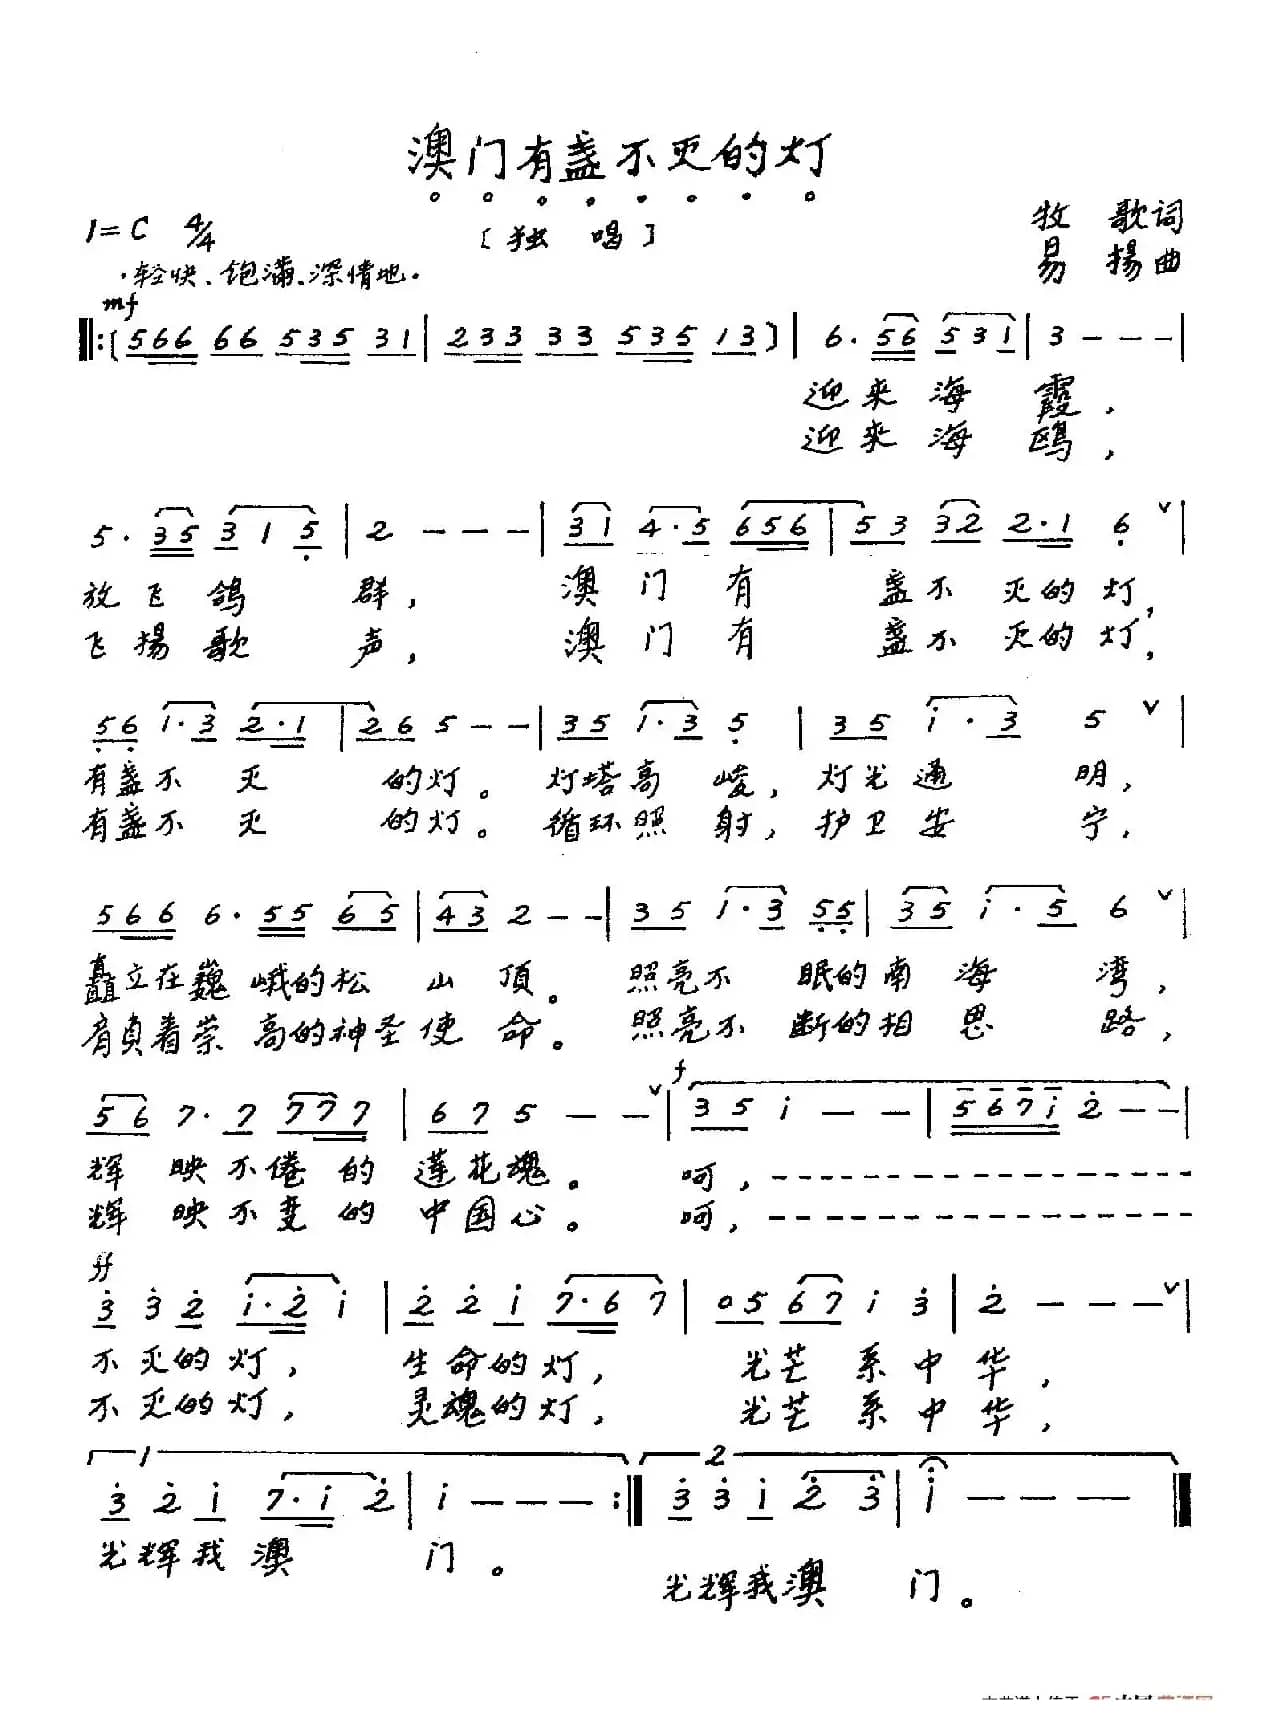 澳门有盏不灭的灯
1=C 4/4
〔独唱〕
牧歌词
易揚曲
轻快、饱满、深情地
mf
‖:(566 66 535 31 | 233 33 535 13) | 6· 56 531 | 3 - - - |
迎来海霞，
迎来海鸥，
5· 35 3 1 5 | 2 - - - | 31 4·5 656 | 53 32 2·1 6 ∨ |
放飞鸽群，澳门有盏不灭的灯，
飞揚歌声，澳门有盏不灭的灯，
56 1·3 2·1 | 2 6 5 - - | 35 1·3 5 | 35 i·3 5 ∨ |
有盏不灭的灯。灯塔高峻，灯光通明，
有盏不灭的灯。循环照射，护卫安宁，
566 6·55 65 | 43 2 - - | 35 1·3 55 | 35 i·5 6 ∨ |
矗立在巍峨的松山顶。照亮不眠的南海湾，
肩负着崇高的神圣使命。照亮不断的相思路，
56 7·7 777 | 67 5 - - ∨ | f 35 i - - | 567i 2 - - |
辉映不倦的莲花魂。呵，-----------
辉映不变的中国心。呵，-----------
ff
3 3 2 i·2 i | 2 2 i 7·6 7 | 05 67 i 3 | 2 - - - ∨ |
不灭的灯，生命的灯，光芒系中华，
不灭的灯，灵魂的灯，光芒系中华，
1
2
3 2 i 7·i 2 | i - - - :‖ 3 3 i 2 3 | i - - - ‖
光辉我澳门。
光辉我澳门。